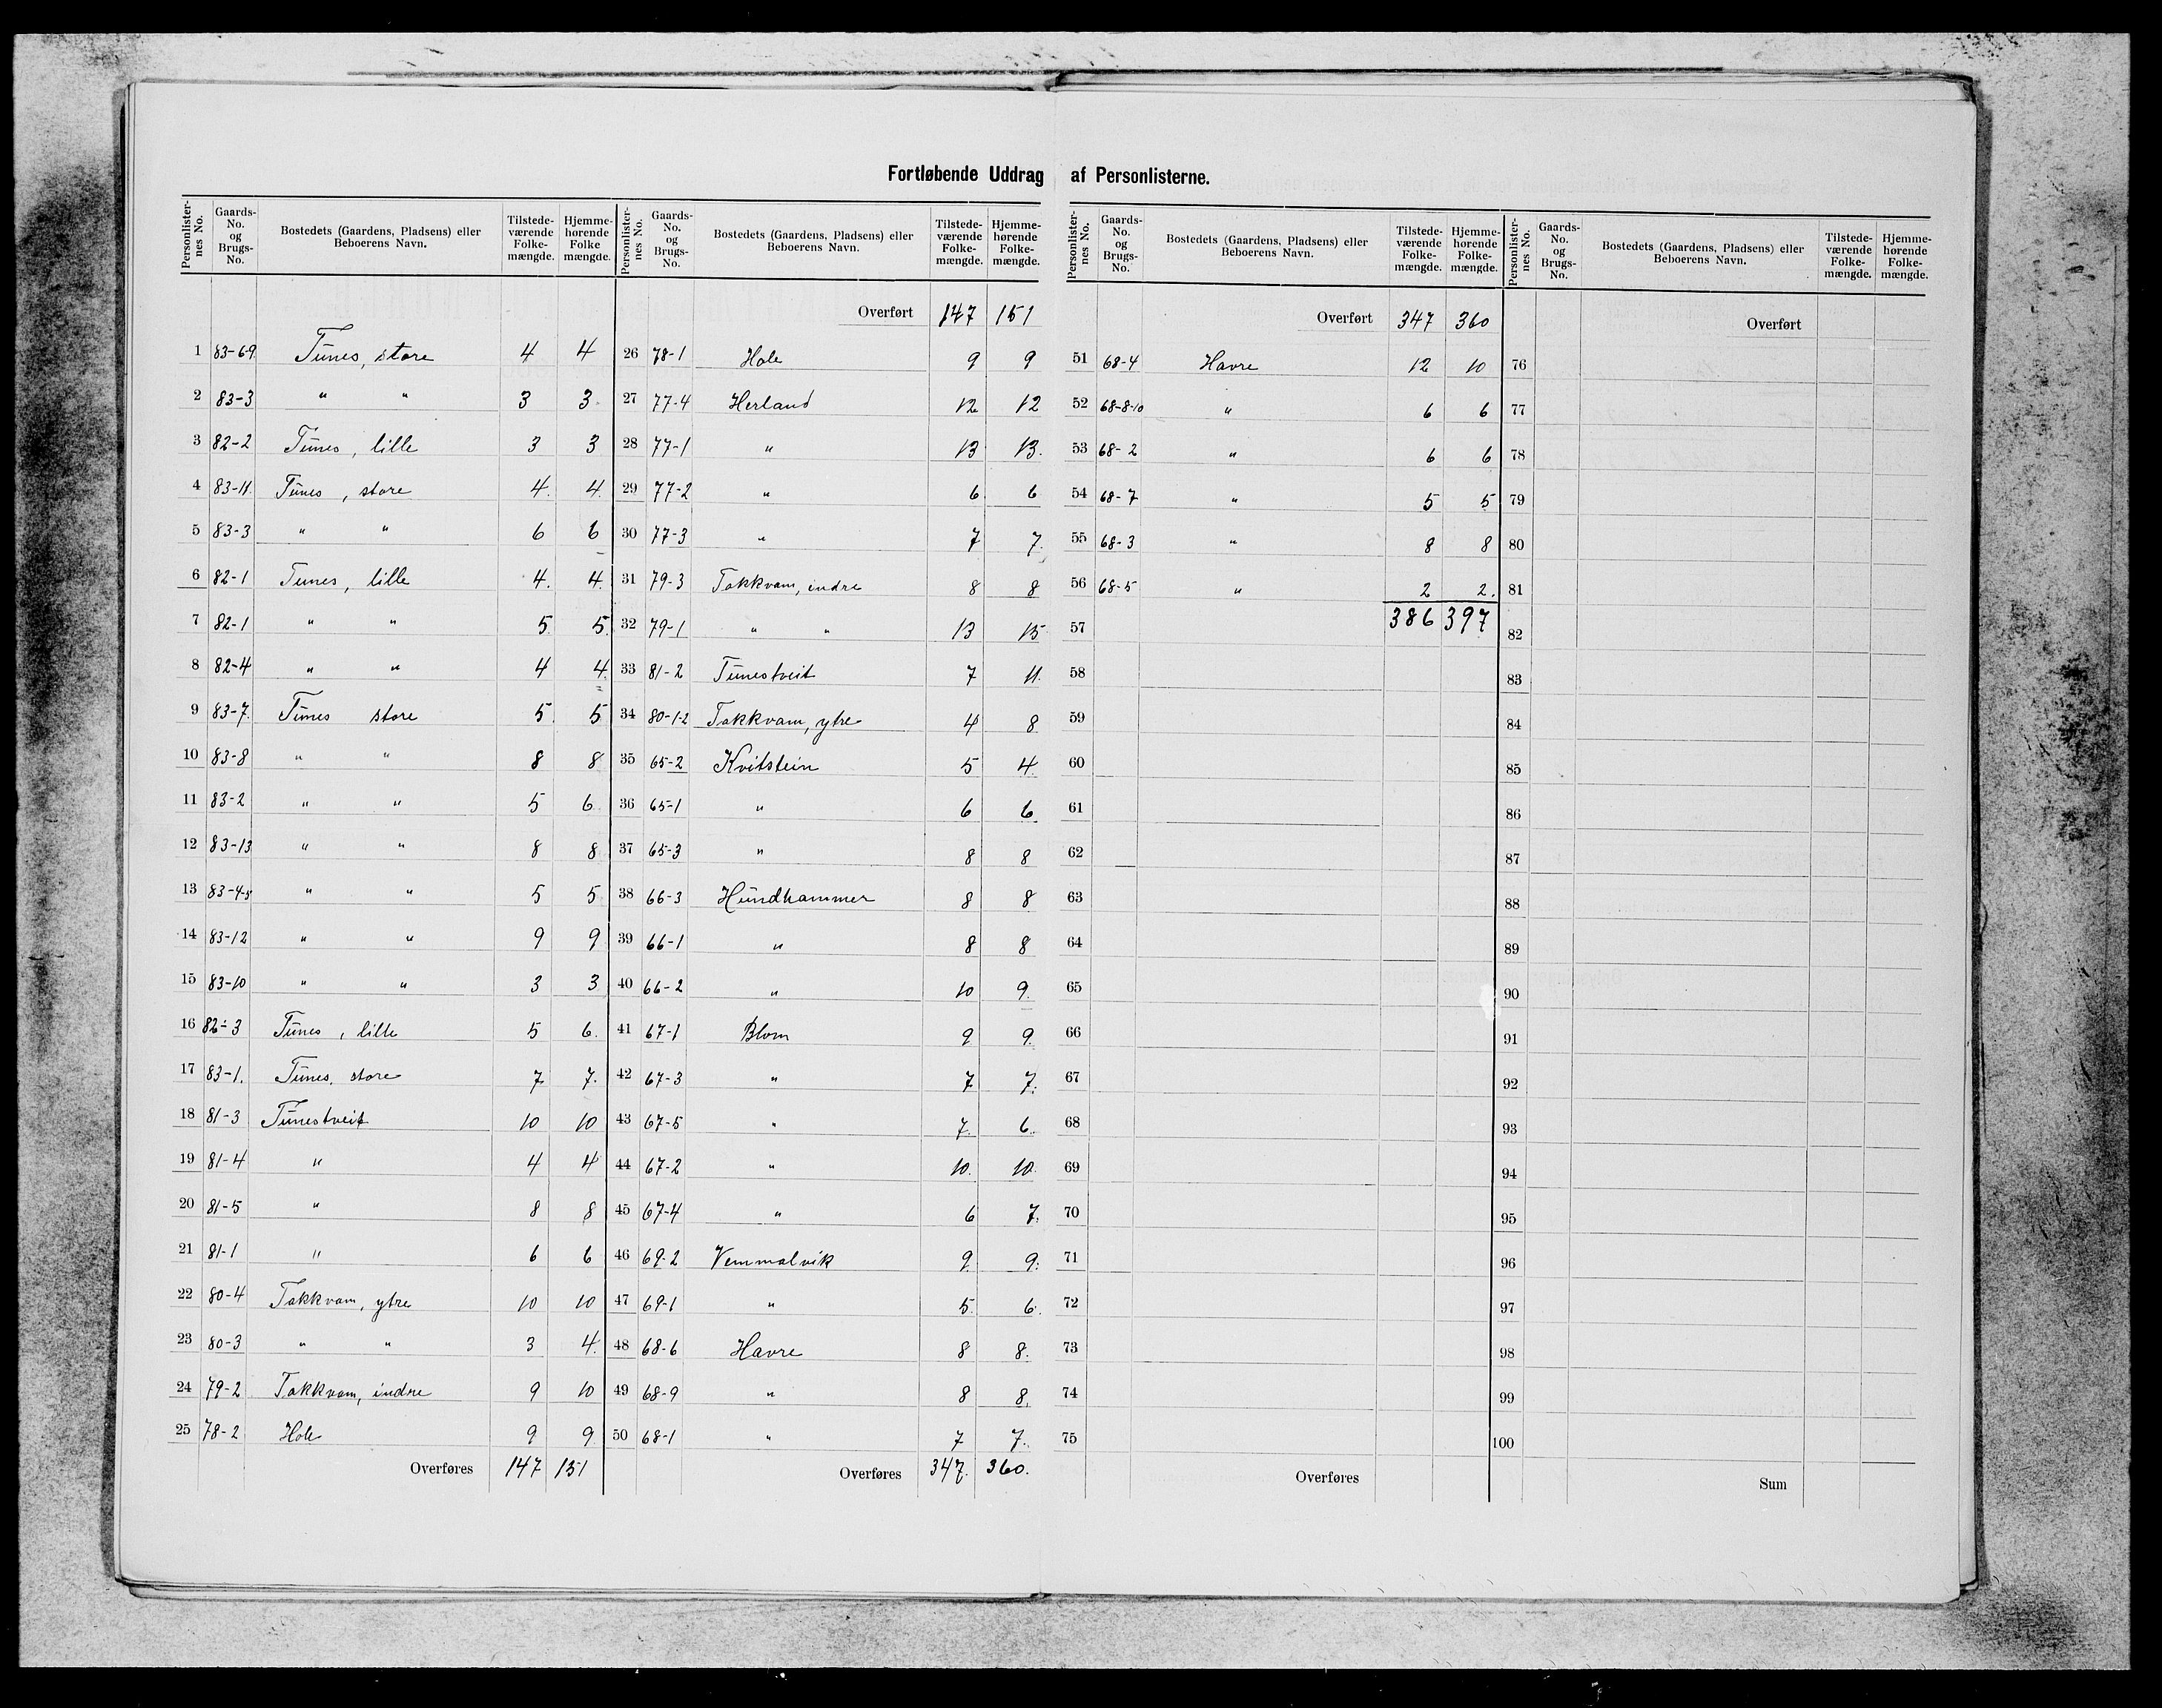 Fortløbende Uddrag af Personlisterne.
Personlisternes No. Gaards-No. og Brugs-No. Bostedets (Gaardens, Pladsens) eller Beboerens Navn. Tilstedeværende Folkemængde. Hjemmehørende Folke mængde.
1 83-6-9 Tunes, store 4 4
2 83-3 " " 3 3
3 82-2 Tunes, lille 3 3
4 83-11 Tunes, store 4. 4.
5 83-3 " " 6 6
6 82-1 Tunes, lille 4. 4.
7 82-1 " " 5 5.
8 82-4 " " 4 4.
9 83-7. Tunes store 5. 5
10 83-8 " " 8 8
11 83-2 " " 5 6
12 83-13 " " 8 8
13 83-4-5 " " 5 5
14 83-12 " " 9 9
15 83-10 " " 3 3
16 82-3 Tunes, lille 5 6.
17 83-1. Tunes, store 7 7.
18 81-3 Tunestveit 10 10
19 81-4 " 4 4
20 81-5 " 8 8
21 81-1 " 6 6
22 80-4 Takkvam, ytre 10 10
23 80-3 " " 3 4.
24 79-2 Takkvam, indre 9 10
25 78-2 Hole 9 9
Overføres 147 151
Personlisternes No. Gaards-No. og Brugs-No. Bostedets (Gaardens, Pladsens) eller Beboerens Navn. Tilstedeværende Folkemængde. Hjemmehørende Folkemængde.
Overført 147 151
26 78-1 Hole 9 9
27 77-4 Herland 12 12
28 77-1 " 13 13.
29 77-2 " 6 6
30 77-3 " 7 7.
31 79-3 Takkvam, indre 8 8
32 79-1 " " 13 15
33 81-2 Tunestveit 7 11.
34 80-1-2 Takkvam, ytre 4 8
35 65-2 Kvitstein 5 4.
36 65-1 " 6 6.
37 65-3 " 8 8
38 66-3 Hundhammer 8 8
39 66-1 " 8 8
40 66-2 " 10 9.
41 67-1 Blom 9 9
42 67-3 " 7 7.
43 67-5 " 7. 6.
44 67-2 " 10. 10.
45 67-4 " 6 7.
46 69-2 Vemmalvik 9. 9.
47 69-1 " 5. 6.
48 68-6 Havre 8 8.
49 68-9 " 8 8.
50 68-1 " 7 7.
Overføres 347. 360.
Personlisternes No. Gaards-No. og Brugs-No. Bostedets (Gaardens, Pladsens) eller Beboerens Navn. Tilstedeværende Folkemængde. Hjemmehørende Folkemængde.
Overført 347 360
51 68-4 Havre 12 10
52 68-8-10 " 6 6
53 68-2 " 6 6
54 68-7 " 5 5
55 68-3 " 8 8
56 68-5 " 2 2.
57 386 397
58
59
60
61
62
63
64
65
66
67
68
69
70
71
72
73
74
75
Overføres
Personlisternes No. Gaards-No. og Brugs-No. Bostedets (Gaardens, Pladsens) eller Beboerens Navn. Tilstedeværende Folkemængde. Hjemmehørende Folkemængde.
Overført
76
77
78
79
80
81
82
83
84
85
86
87
88
89
90
91
92
93
94
95
96
97
98
99
100
Sum